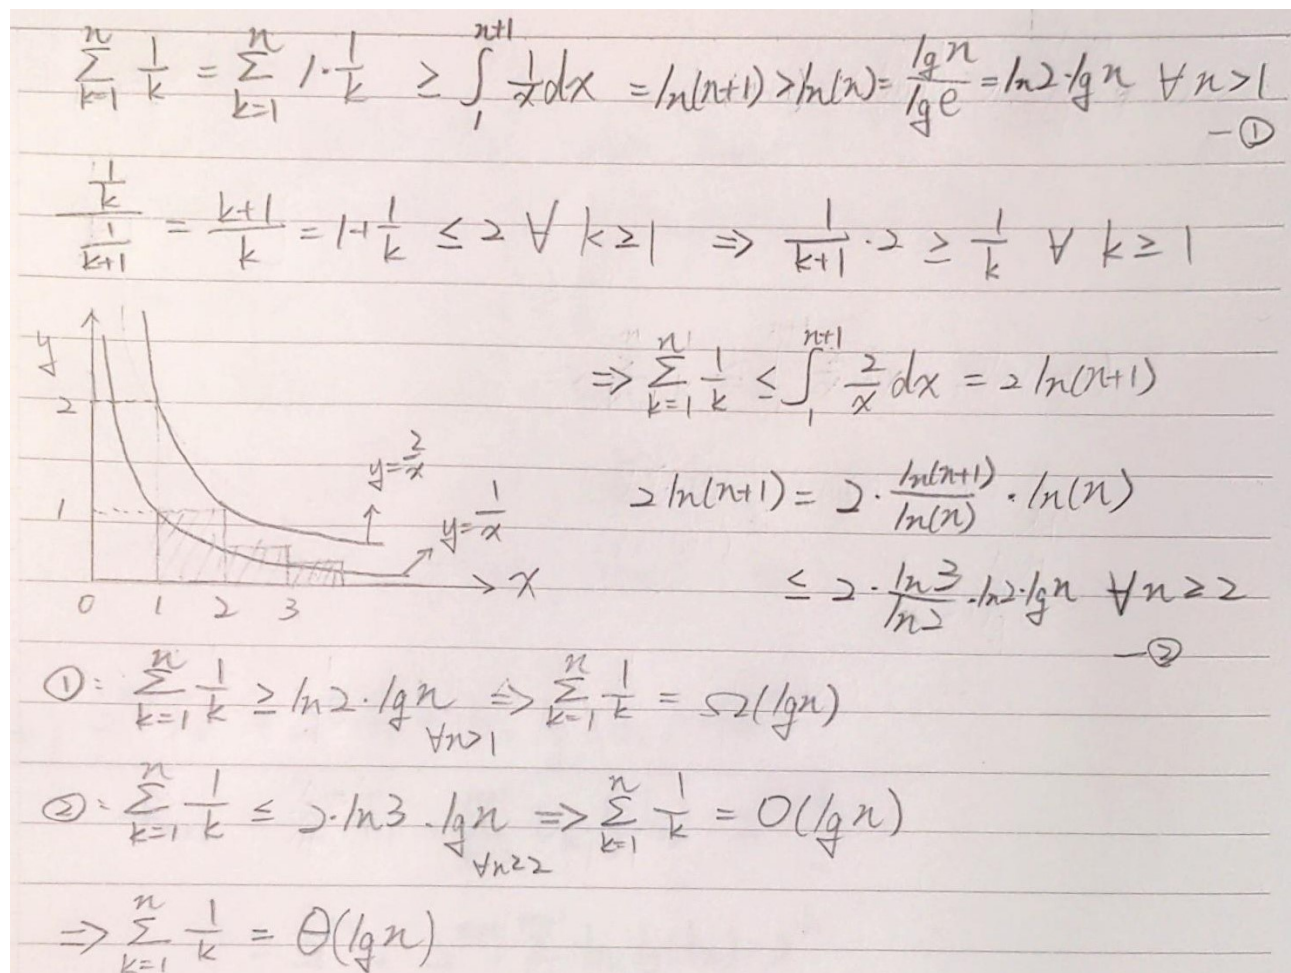 ∑_{k=1}^{n} 1/k = ∑_{k=1}^{n} 1·1/k ≥ ∫_{1}^{n+1} 1/x dx = ln(n+1) > ln(n) = lg n / lg e = ln2·lg n ∀ n>1
—①
(1/k)/(1/(k+1)) = (k+1)/k = 1+1/k ≤ 2 ∀ k≥1 ⇒ 1/(k+1)·2 ≥ 1/k ∀ k≥1
y
2
1
0 1 2 3
x
y=2/x
y=1/x
⇒ ∑_{k=1}^{n} 1/k ≤ ∫_{1}^{n+1} 2/x dx = 2 ln(n+1)
2 ln(n+1) = 2·ln(n+1)/ln(n)·ln(n)
≤ 2·ln3/ln2·ln2·lg n ∀n≥2
—②
①: ∑_{k=1}^{n} 1/k ≥ ln2·lg n ∀n>1 ⇒ ∑_{k=1}^{n} 1/k = Ω(lg n)
②: ∑_{k=1}^{n} 1/k ≤ 2·ln3·lg n ∀n≥2 ⇒ ∑_{k=1}^{n} 1/k = O(lg n)
⇒ ∑_{k=1}^{n} 1/k = Θ(lg n)